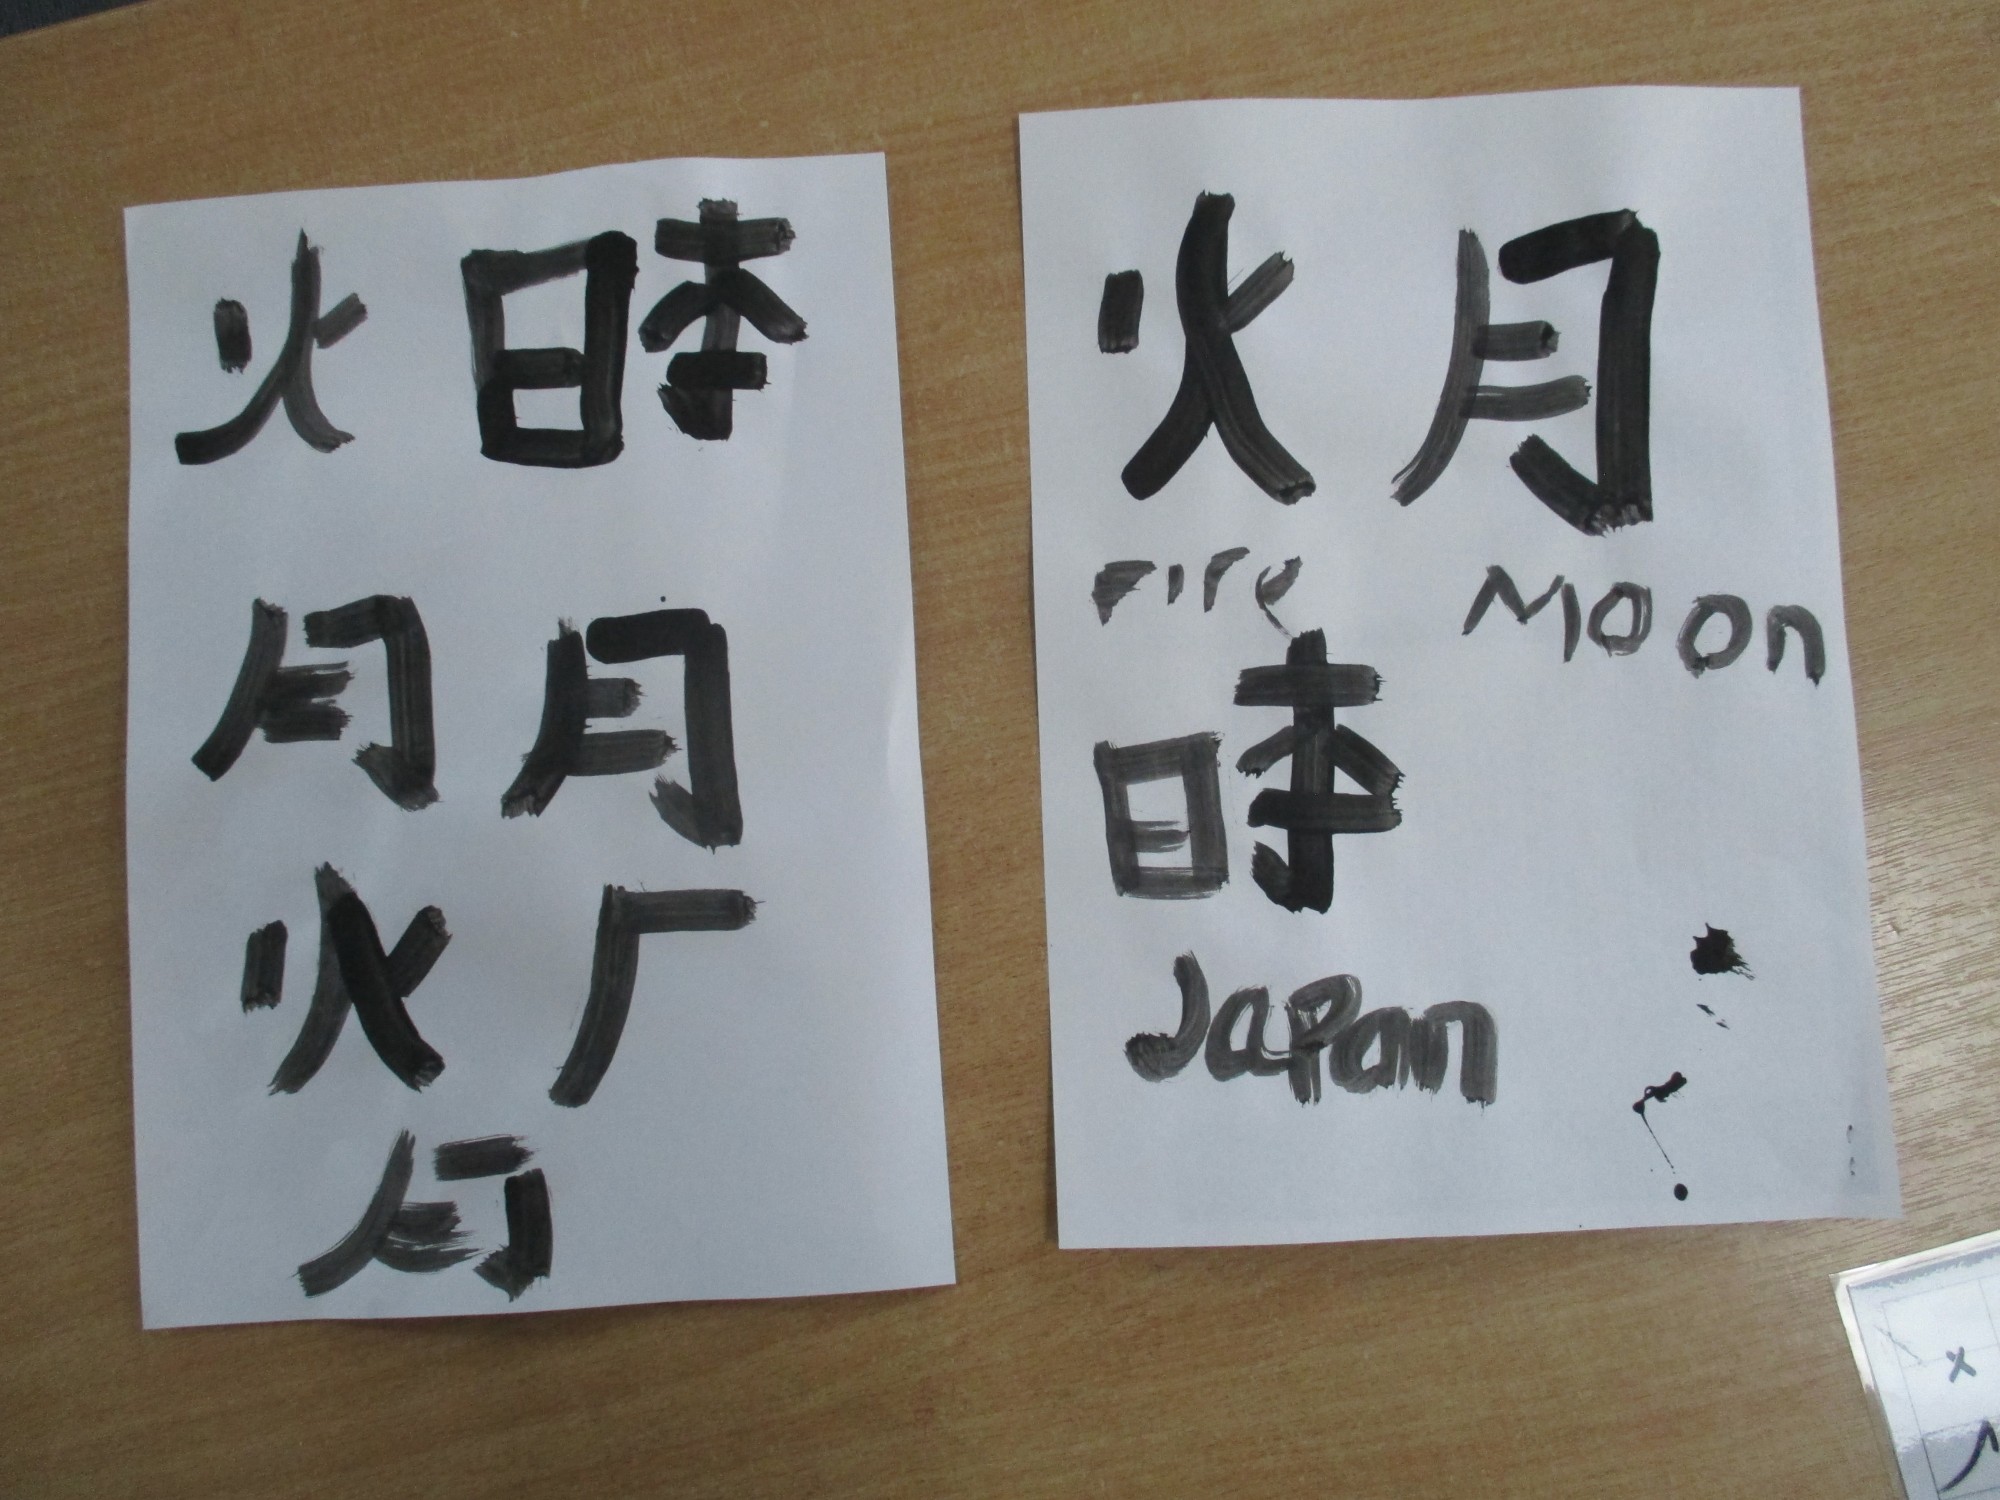 火 日本
月 月
火 厂
月
火 月
Fire Moon
日本
Japan